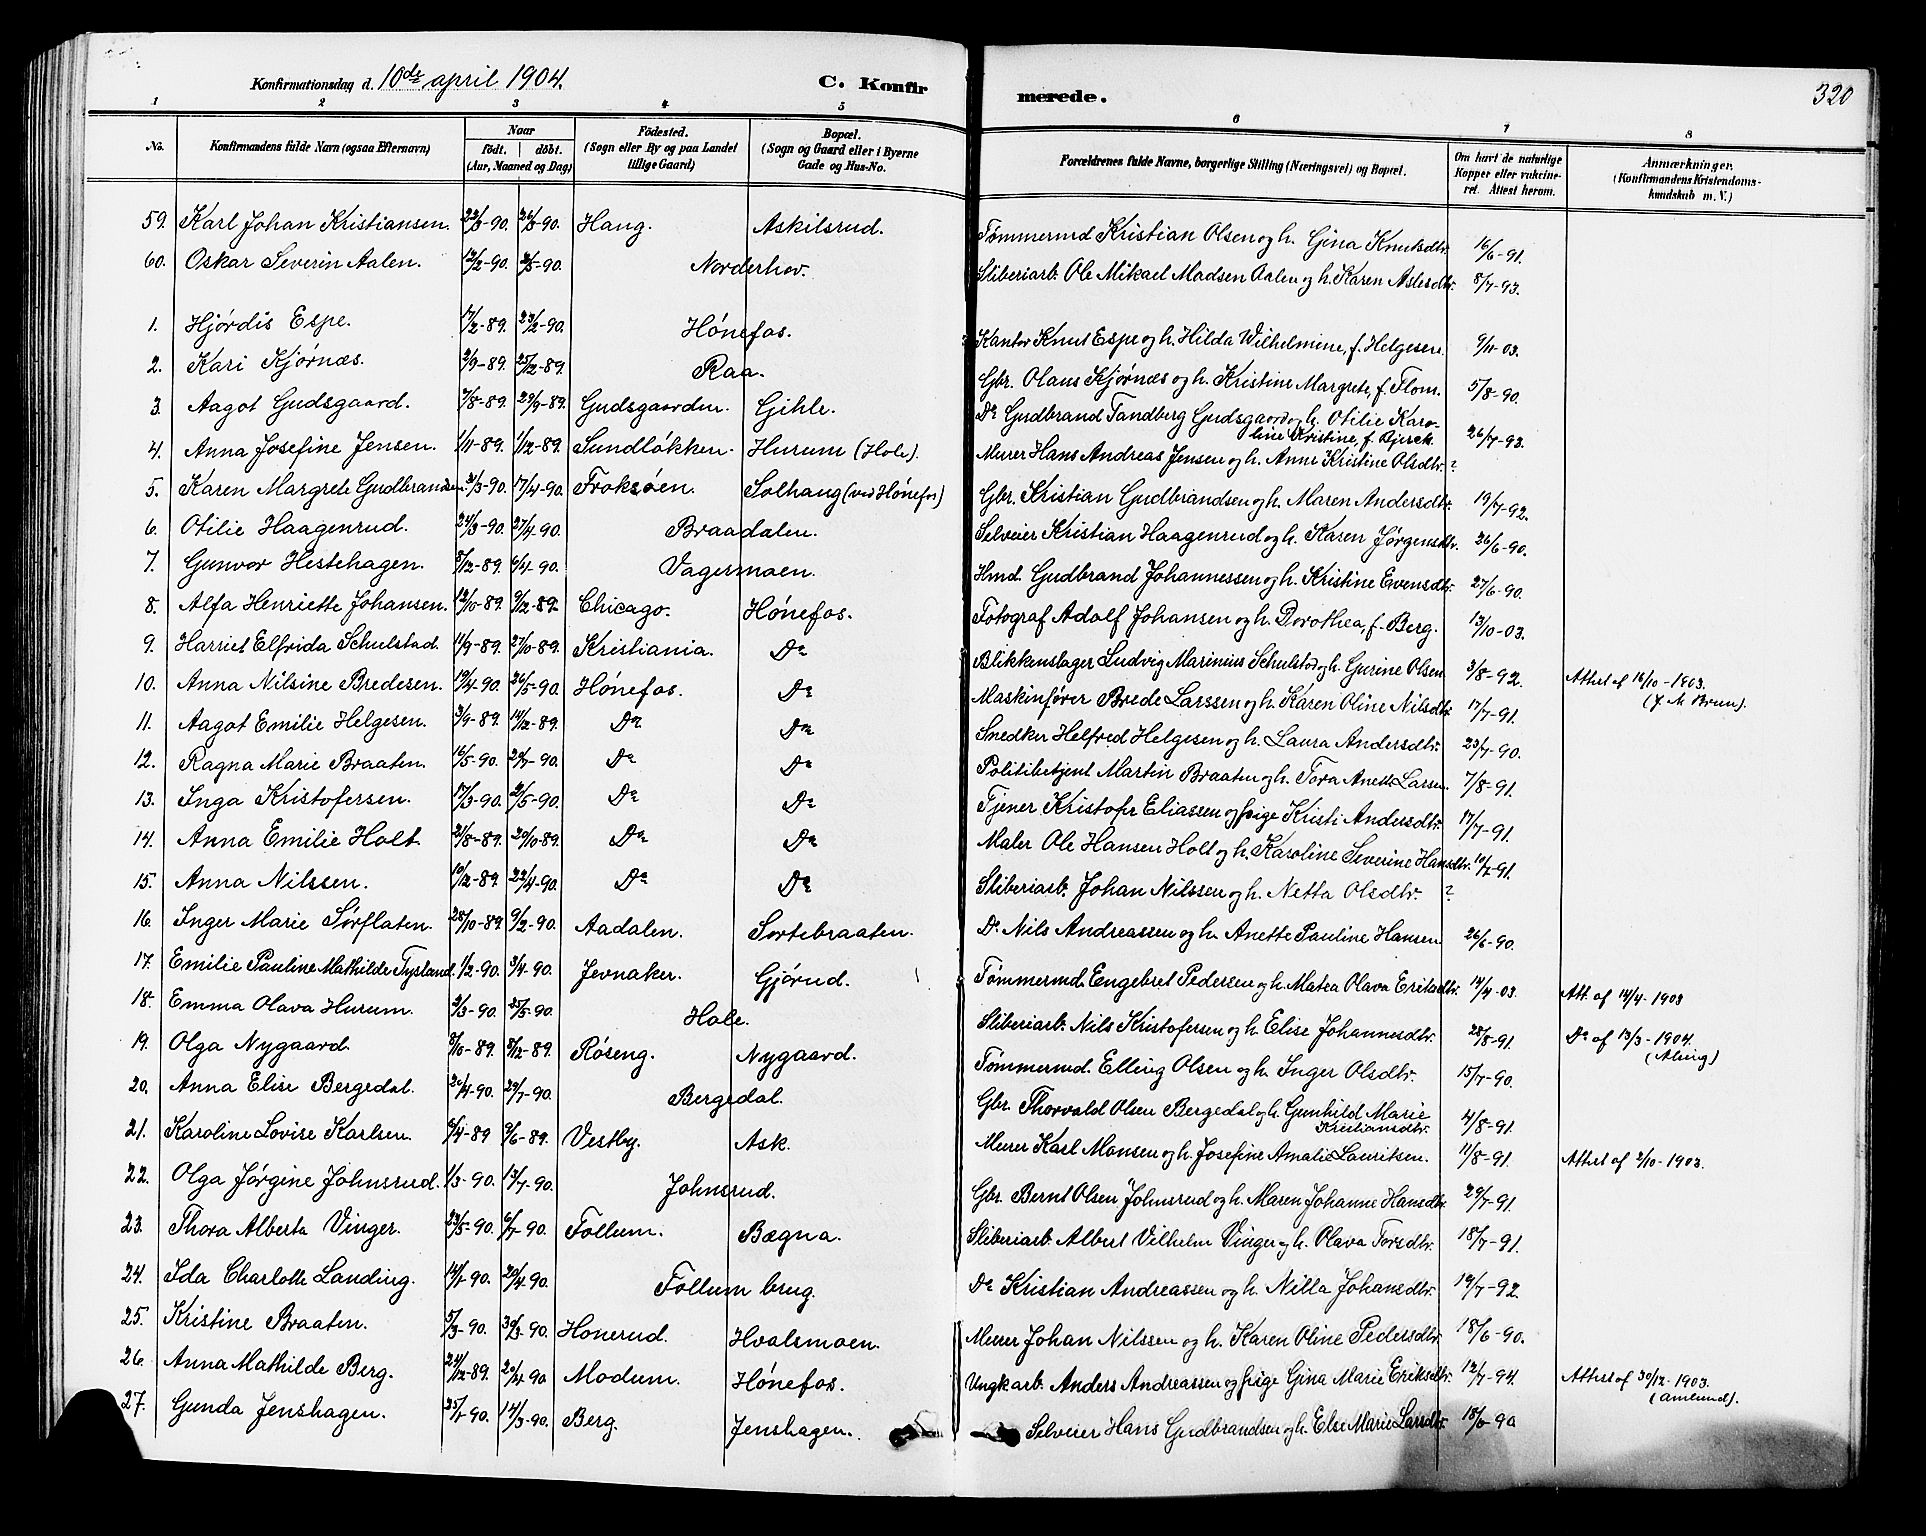 Konfirmationsdag d. 10de april 1904. C. Konfirmerede. 320
1 2 3 4 5 6 7 8
No. Konfirmandens fulde Navn (ogsaa Efternavn) Naar födt. döbt. (Aar, Maaned og Dag) Födested. (Sogn eller By og paa Landet tillige Gaard) Bopæl. (Sogn og Gaard eller i Byerne Gade og Hus-No. Forældrenes fulde Navne, borgerlige Stilling (Næringsvei) og Bopæl. Om havt de naturlige Kopper eller vakcineret. Attest herom. Anmærkninger. (Konfirmandens Kristendomskundskab m. V.)
59. Karl Johan Kristiansen. 26/8-90. Haug. Askilsrud. Tømmermd Kristian Olsen og h. Gina Knutsdtr. 16/6-91.
60. Oskar Severin Aalen. 12/2-90. 2/5-90. Norderhov. Sliberiarb. Ole Mikael Madsen Aalen og h. Karen Aslesdtr. 8/7-93.
1. Hjørdis Espe. 17/2-89. 23/2-90. Hønefos. Kantor Knut Espe og h. Hilda Wilhelmine, f. Helgesen. 9/11-03.
2. Kari Kjørnæs. 2/9-89. 25/12-89. Raa. Gbr. Olaus Kjørnæs og h. Kristine Margrete, f. Flom. 5/8-90.
3. Aagot Gudsgaard. 7/8-89. 29/9-89. Gudsgaarden. Gihle. Do Gudbrand Tandberg Gudsgaard og h. Otilie Karoline Kristine, f. Bjerck. 26/7-93.
4. Anna Josefine Jensen. 1/11-89. 1/12-89. Sundløkken. Hurum (Hole). Murer Hans Andreas Jensen og h. Anne Kristine Olsdtr. ?
5. Karen Margrete Gudbrandsen. 31/3-90. 17/4-90. Froksøen. Solhaug (ved Hønefos) Gbr. Kristian Gudbrandsen og h. Maren Andersdtr. 19/7-92.
6. Otilie Haagenrud. 24/3-90. 27/4-90. Braadalen. Selveier Kristian Haagenrud og h. Karen Jørgensdtr. 26/6-90.
7. Gunvor Hestehagen. 8/12-89. 6/4-90. Vagermoen. Hmd. Gudbrand Johannessen og h. Kristine Evensdtr. 27/6-90.
8. Alfa Henriette Johansen. 12/10-89. 9/12-89. Chicago. Hønefos. Fotograf Adolf Johansen og h. Dorothea, f. Berg. 13/10-03.
9. Harriet Elfrida Schulstad. 11/9-89. 27/10-89. Kristiania. Do Blikkenslager Ludvig Marinius Schulstad og h. Gurine Olsen 3/8-92. Attest af 16/10-1903. (J. M. Bruun).
10. Anna Nilsine Bredesen. 19/4-90. 26/5-90. Hønefos. Do Maskinfører Brede Larssen og h. Karen Oline Nilsdtr. 17/7-91.
11. Aagot Emilie Helgesen. 3/9-89. 14/12-89. Do Do Snedker Helfred Helgesen og h. Laura Andersdtr. 23/7-90.
12. Ragna Marie Braaten. 16/5-90. 20/7-90. Do Do Politibetjent Martin Braaten og h. Tora Anette Larsen. 7/8-91.
13. Inga Kristofersen. 17/3-90. 2/5-90. Do Do Tjener Kristofer Eliassen og pige Kristi Andersdtr. 17/7-91.
14. Anna Emilie Holt. 21/8-89. 20/10-89. Do Do Maler Ole Hansen Holt og h. Karoline Severine Hansdtr. 10/7-91.
15. Anna Nilssen. 10/12-89. 22/4-90. Do Do Sliberiarb. Johan Nilssen og h. Netta Olsdtr. ?
16. Inger Marie Sørflaten. 28/10-89. 9/2-90. Aadalen. Sortebraaten. Do Nils Andreassen og h. Anette Pauline Hansen. 26/6-90.
17. Emilie Pauline Mathilde Tysland. 1/2-90. 3/4-90. Jevnaker. Gjørud. Tømmermd. Engebret Pedersen og h. Matea Olava Eriksdtr. 14/4-03. Att. af 14/4-1903
18. Emma Olava Hurum. 2/3-90. 25/5-90. Hole. Sliberiarb. Nils Kristofersen og h. Elise Johannesdtr. 28/8-91. Do af 13/3-1904.
19. Olga Nygaard. 8/10-89. 8/12-89. Røseng. Nygaard. Tømmermd. Elling Olsen og h. Inger Olsdtr. 15/7-90.
20. Anna Elise Bergedal. 20/4-90. 29/7-90. Bergedal. Gbr. Thorvald Olsen Bergedal og h. Gunhild Marie Kristiansdtr. 4/8-91.
21. Karoline Lovise Karlsen. 6/4-89 9/6-89. Vestby. Ask. Murer Karl Monsen og h. Josefine Amalie Lauritsen. 11/8-91. Attest af 2/10-1903.
22. Olga Jørgine Johnsrud. 1/3-90. 13/7-90. Johnsrud. Gbr. Bernt Olsen Johnsrud og h. Maren Johanne Hansdtr. 29/7-91.
23. Thora Alberta Vinger. 23/5-90. 6/7-90. Follum. Bægna. Sliberiarb. Albert Vilhelm Vinger og h. Olava Torsdtr. 18/7-91.
24. Ida Charlotte Landing. 14/1-90. 20/4-90. Follum brug. Do Kristian Andreassen og h. Nilla Johansdtr. 19/7-92.
25. Kristine Braaten. 5/3-90. 30/3-90. Honerud. Hvalsmoen. Murer Johan Nilssen og h. Karen Oline Pedersdtr. 18/6-90.
26. Anna Mathilde Berg. 24/12-89. 20/4-90 Modum. Hønefos. Ungkarb. Anders Andreassen og pige Gina Marie Eriksdtr. 12/7-94. Attest af 30/12-1903.
27. Gunda Jenshagen. 25/1-90. 14/3-90. Berg. Jenshagen. Selveier Hans Gudbrandsen og h. Else Marie Larsdtr. 18/6-90